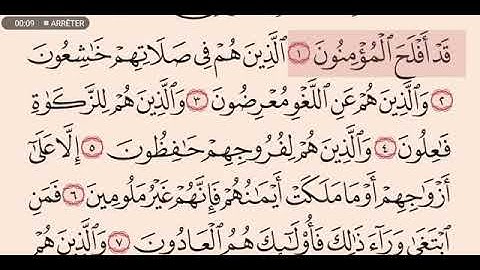 00:09 ■ ARRÊTER
قَدْ أَفْلَحَ ٱلْمُؤْمِنُونَ ١ ٱلَّذِينَ هُمْ فِى صَلَاتِهِمْ خَٰشِعُونَ
٢ وَٱلَّذِينَ هُمْ عَنِ ٱللَّغْوِ مُعْرِضُونَ ٣ وَٱلَّذِينَ هُمْ لِلزَّكَوٰةِ
فَٰعِلُونَ ٤ وَٱلَّذِينَ هُمْ لِفُرُوجِهِمْ حَٰفِظُونَ ٥ إِلَّا عَلَىٰٓ
أَزْوَٰجِهِمْ أَوْ مَا مَلَكَتْ أَيْمَٰنُهُمْ فَإِنَّهُمْ غَيْرُ مَلُومِينَ ٦ فَمَنِ
ٱبْتَغَىٰ وَرَآءَ ذَٰلِكَ فَأُو۟لَٰٓئِكَ هُمُ ٱلْعَادُونَ ٧ وَٱلَّذِينَ هُمْ